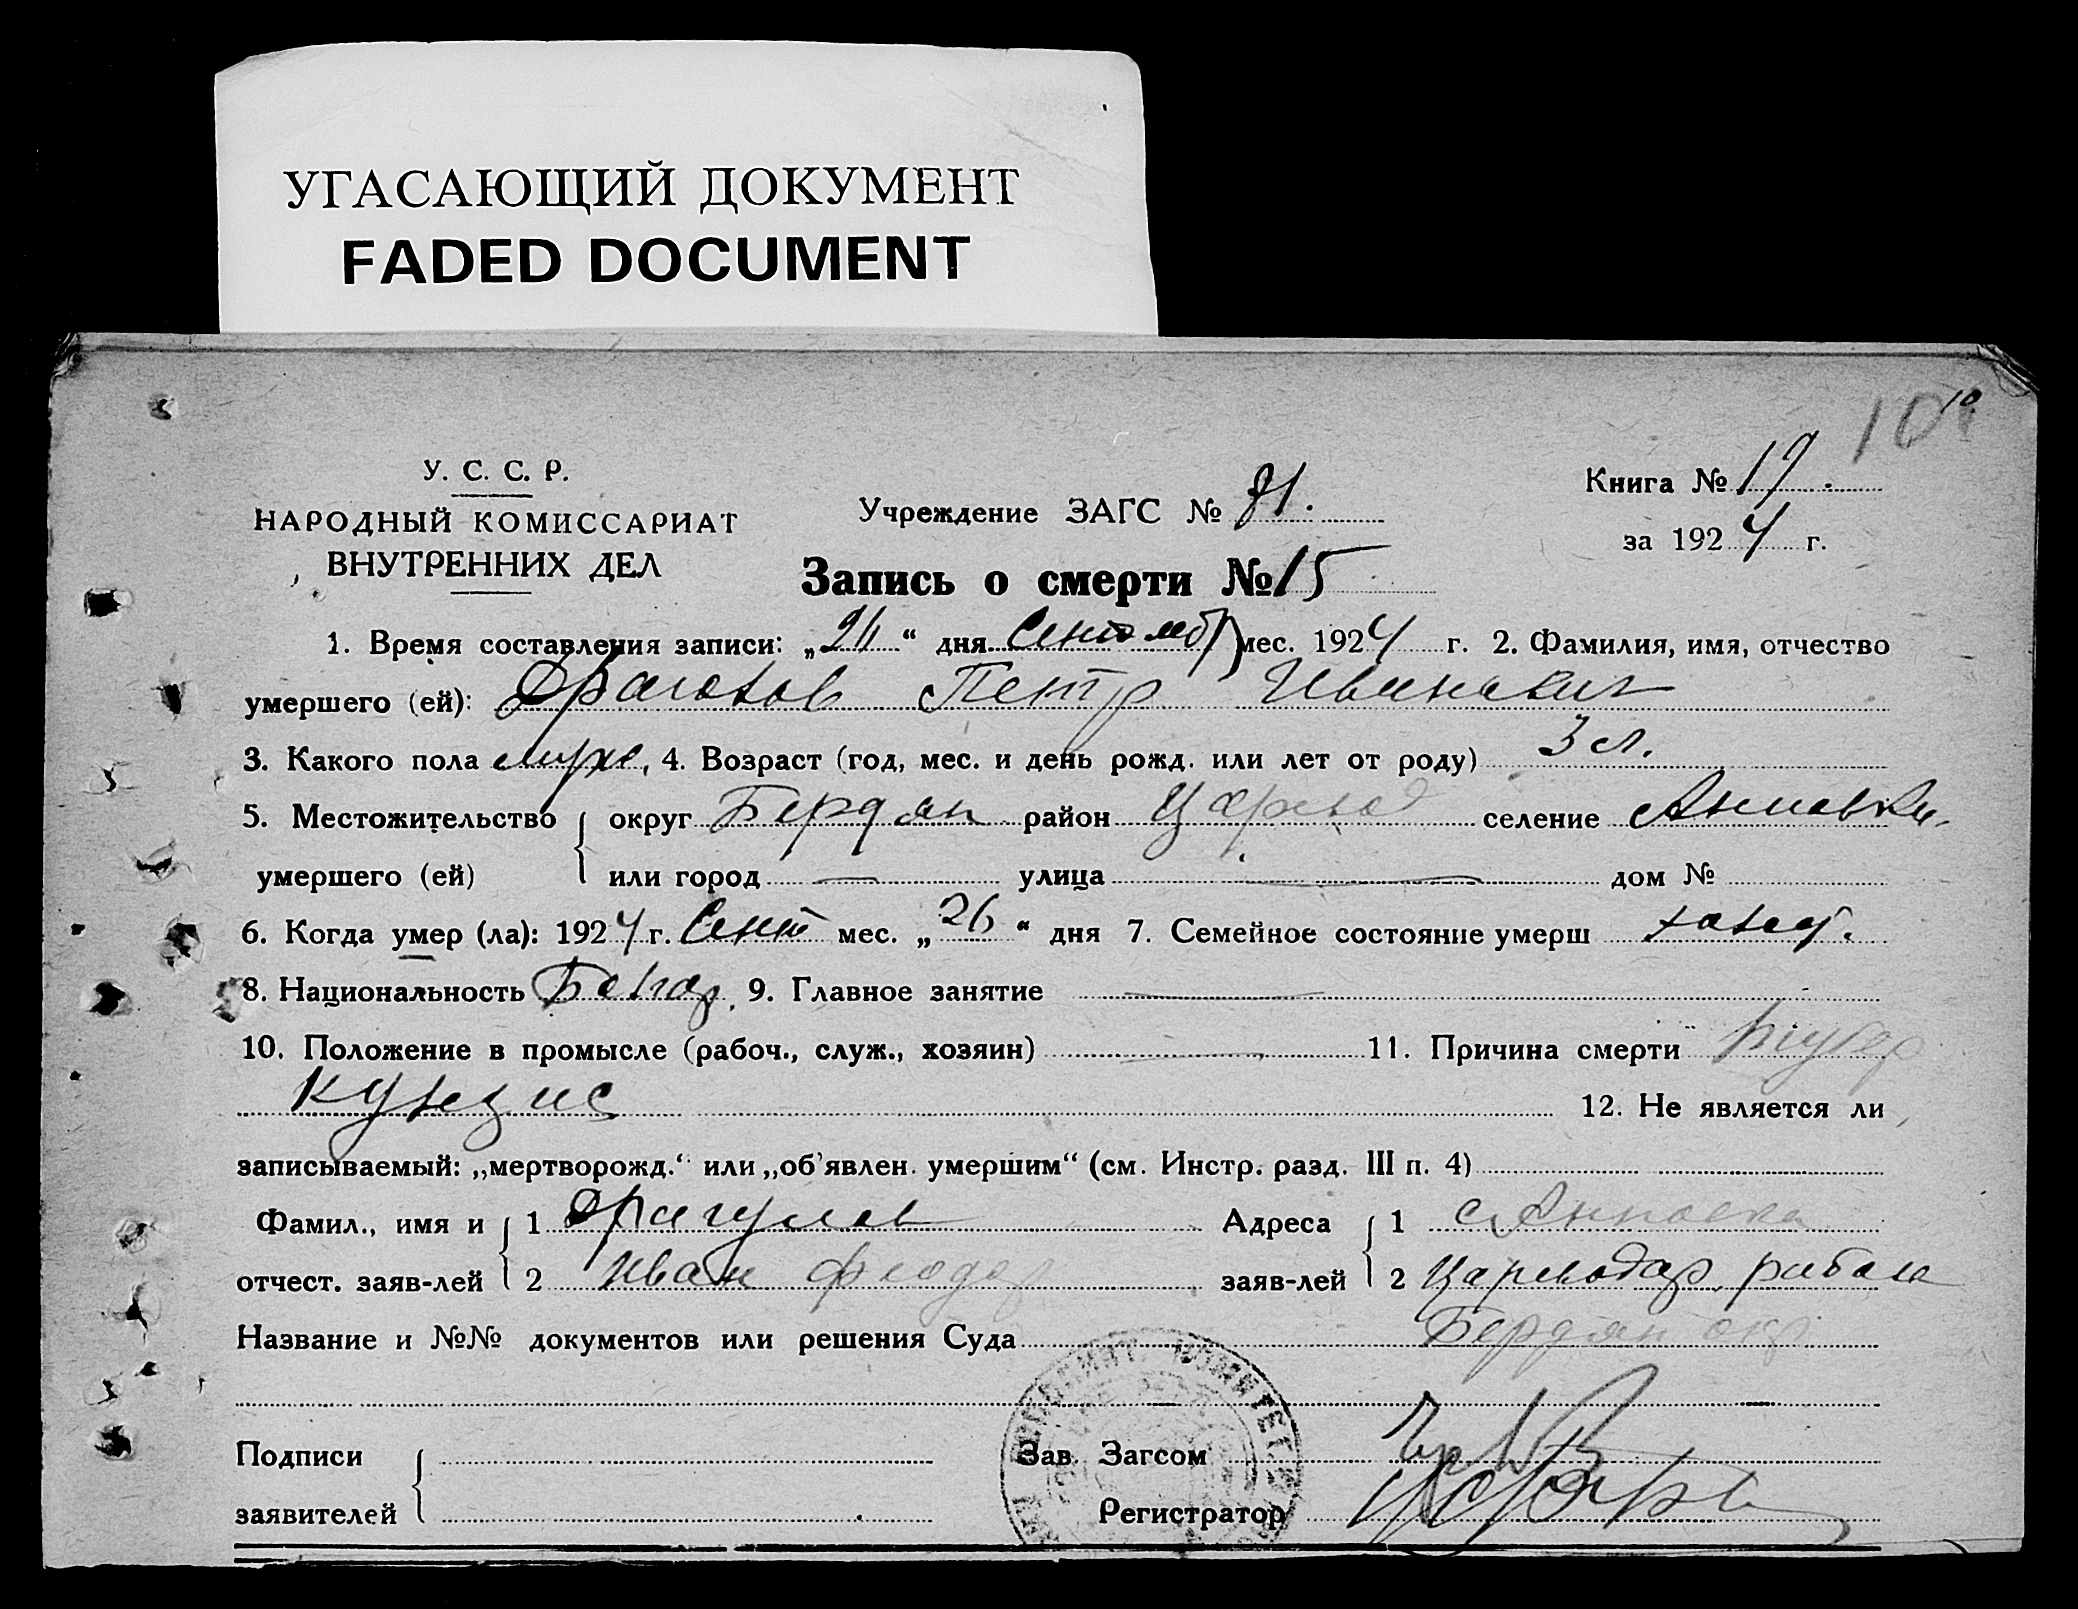 УГАСАЮЩИЙ ДОКУМЕНТ
FADED DOCUMENT
10
10
У. С. С. Р.
НАРОДНЫЙ КОМИССАРИАТ
ВНУТРЕННИХ ДЕЛ
Учреждение ЗАГС №
Книга № 17
за 1924 г.
Запись о смерти № 15
1. Время составления записи: „26“ дня Сентябр мес. 1924 г. 2. Фамилия, имя, отчество
умершего (ей): Петр Иванович
3. Какого пола муж. 4. Возраст (год, мес. и день рожд. или лет от роду) 3 л.
5. Местожительство округ Бердян район Царевод селение Анновка
умершего (ей) или город — улица — дом №
6. Когда умер (ла): 1924 г. Сент мес. „26“ дня 7. Семейное состояние умерш холост.
8. Национальность Болгар. 9. Главное занятие —
10. Положение в промысле (рабоч., служ., хозяин) — 11. Причина смерти тубер
кулезис 12. Не является ли
записываемый: „мертворожд.“ или „об'явлен. умершим“ (см. Инстр. разд. III п. 4)
Фамил., имя и 1 Драгулов Адреса 1 с. Анновка
отчест. заяв-лей 2 Иван Феодор заяв-лей 2 Цареводар. района
Название и №№ документов или решения Суда Бердян окр
Подписи Зав. Загсом
заявителей Регистратор